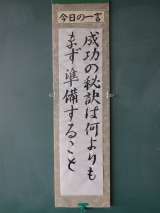 今日の一言
成功の秘訣は何よりも
まず準備すること